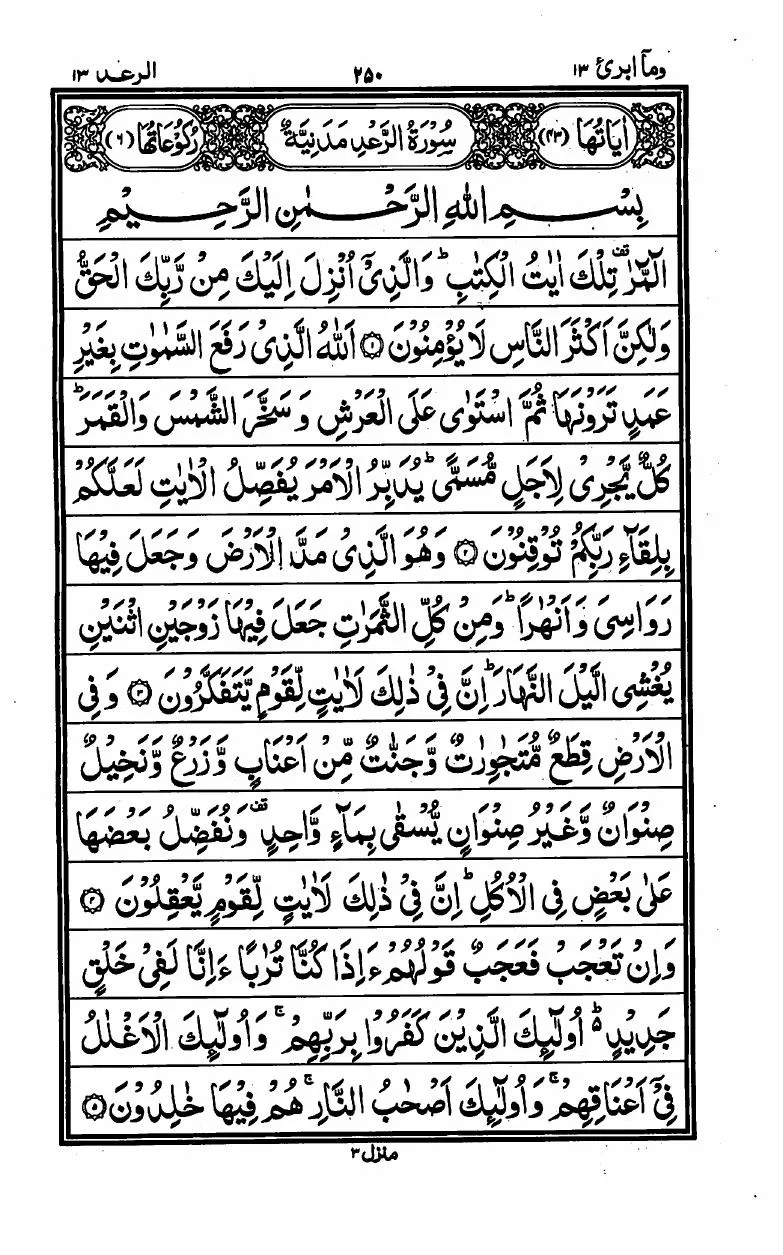 وما ابرئ ١٣ ٢٥٠ الرعد ١٣
اٰیَاتُهَا (٤٣) سُوْرَةُ الرَّعْدِ مَدَنِیَّةٌ رُکُوْعَاتُهَا (٦)
بِسْمِ اللّٰهِ الرَّحْمٰنِ الرَّحِیْمِ
الٓمّٓرٰ ۟ تِلْكَ اٰیٰتُ الْكِتٰبِ ؕ وَالَّذِیْۤ اُنْزِلَ اِلَیْكَ مِنْ رَّبِّكَ الْحَقُّ
وَلٰكِنَّ اَكْثَرَ النَّاسِ لَا یُؤْمِنُوْنَ ﴿١﴾ اَللّٰهُ الَّذِیْ رَفَعَ السَّمٰوٰتِ بِغَیْرِ
عَمَدٍ تَرَوْنَهَا ثُمَّ اسْتَوٰی عَلَی الْعَرْشِ وَ سَخَّرَ الشَّمْسَ وَالْقَمَرَ ؕ
كُلٌّ یَّجْرِیْ لِاَجَلٍ مُّسَمًّی ؕ یُدَبِّرُ الْاَمْرَ یُفَصِّلُ الْاٰیٰتِ لَعَلَّكُمْ
بِلِقَآءِ رَبِّكُمْ تُوْقِنُوْنَ ﴿٢﴾ وَهُوَ الَّذِیْ مَدَّ الْاَرْضَ وَجَعَلَ فِیْهَا
رَوَاسِیَ وَاَنْهٰرًا ؕ وَمِنْ كُلِّ الثَّمَرٰتِ جَعَلَ فِیْهَا زَوْجَیْنِ اثْنَیْنِ
یُغْشِی الَّیْلَ النَّهَارَ ؕ اِنَّ فِیْ ذٰلِكَ لَاٰیٰتٍ لِّقَوْمٍ یَّتَفَكَّرُوْنَ ﴿٣﴾ وَفِی
الْاَرْضِ قِطَعٌ مُّتَجٰوِرٰتٌ وَّجَنّٰتٌ مِّنْ اَعْنَابٍ وَّزَرْعٌ وَّنَخِیْلٌ
صِنْوَانٌ وَّغَیْرُ صِنْوَانٍ یُّسْقٰی بِمَآءٍ وَّاحِدٍ ۟ وَنُفَضِّلُ بَعْضَهَا
عَلٰی بَعْضٍ فِی الْاُكُلِ ؕ اِنَّ فِیْ ذٰلِكَ لَاٰیٰتٍ لِّقَوْمٍ یَّعْقِلُوْنَ ﴿٤﴾
وَاِنْ تَعْجَبْ فَعَجَبٌ قَوْلُهُمْ ءَاِذَا كُنَّا تُرٰبًا ءَاِنَّا لَفِیْ خَلْقٍ
جَدِیْدٍ ۬ؕ اُولٰٓئِكَ الَّذِیْنَ كَفَرُوْا بِرَبِّهِمْ ۚ وَاُولٰٓئِكَ الْاَغْلٰلُ
فِیْۤ اَعْنَاقِهِمْ ۚ وَاُولٰٓئِكَ اَصْحٰبُ النَّارِ ۚ هُمْ فِیْهَا خٰلِدُوْنَ ﴿٥﴾
منزل ٣